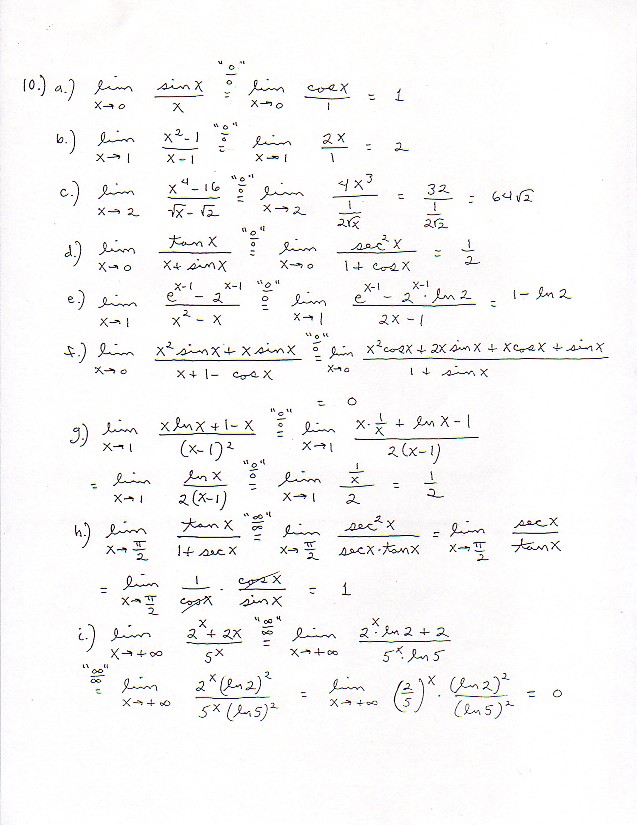 10.) a.) lim x→0 sin x / x "0/0"= lim x→0 cos x / 1 = 1
b.) lim x→1 (x² - 1)/(x - 1) "0/0"= lim x→1 2x/1 = 2
c.) lim x→2 (x⁴ - 16)/(√x - √2) "0/0"= lim x→2 4x³/(1/(2√x)) = 32/(1/(2√2)) = 64√2
d.) lim x→0 tan x/(x + sin x) "0/0"= lim x→0 sec² x/(1 + cos x) = 1/2
e.) lim x→1 (e^(x-1) - 2^(x-1))/(x² - x) "0/0"= lim x→1 (e^(x-1) - 2^(x-1)·ln 2)/(2x - 1) = 1 - ln 2
f.) lim x→0 (x² sin x + x sin x)/(x + 1 - cos x) "0/0"= lim x→0 (x² cos x + 2x sin x + x cos x + sin x)/(1 + sin x)
= 0
g.) lim x→1 (x ln x + 1 - x)/(x - 1)² "0/0"= lim x→1 (x·1/x + ln x - 1)/(2(x - 1))
= lim x→1 ln x/(2(x - 1)) "0/0"= lim x→1 (1/x)/2 = 1/2
h.) lim x→π/2 tan x/(1 + sec x) "∞/∞"= lim x→π/2 sec² x/(sec x·tan x) = lim x→π/2 sec x/tan x
= lim x→π/2 1/cos x · cos x/sin x = 1
i.) lim x→+∞ (2^x + 2x)/5^x "∞/∞"= lim x→+∞ (2^x·ln 2 + 2)/(5^x·ln 5)
"∞/∞"= lim x→+∞ 2^x (ln 2)²/(5^x (ln 5)²) = lim x→+∞ (2/5)^x · (ln 2)²/(ln 5)² = 0